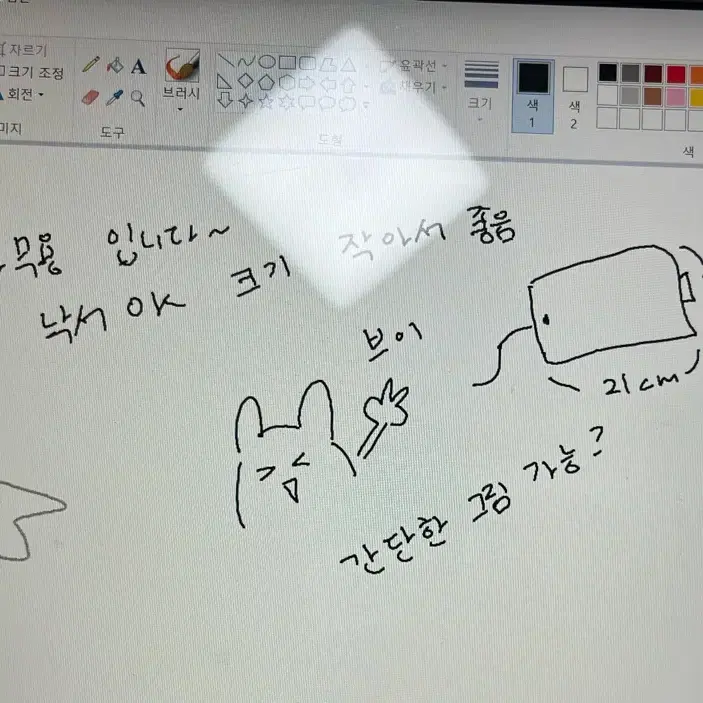 자르기
크기 조정
회전
브러시
도구
도형
윤곽선
채우기
크기
색 1
색 2
색
입니다~
낙서 OK 크기 작아서 좋음
브이
21cm
간단한 그림 가능?